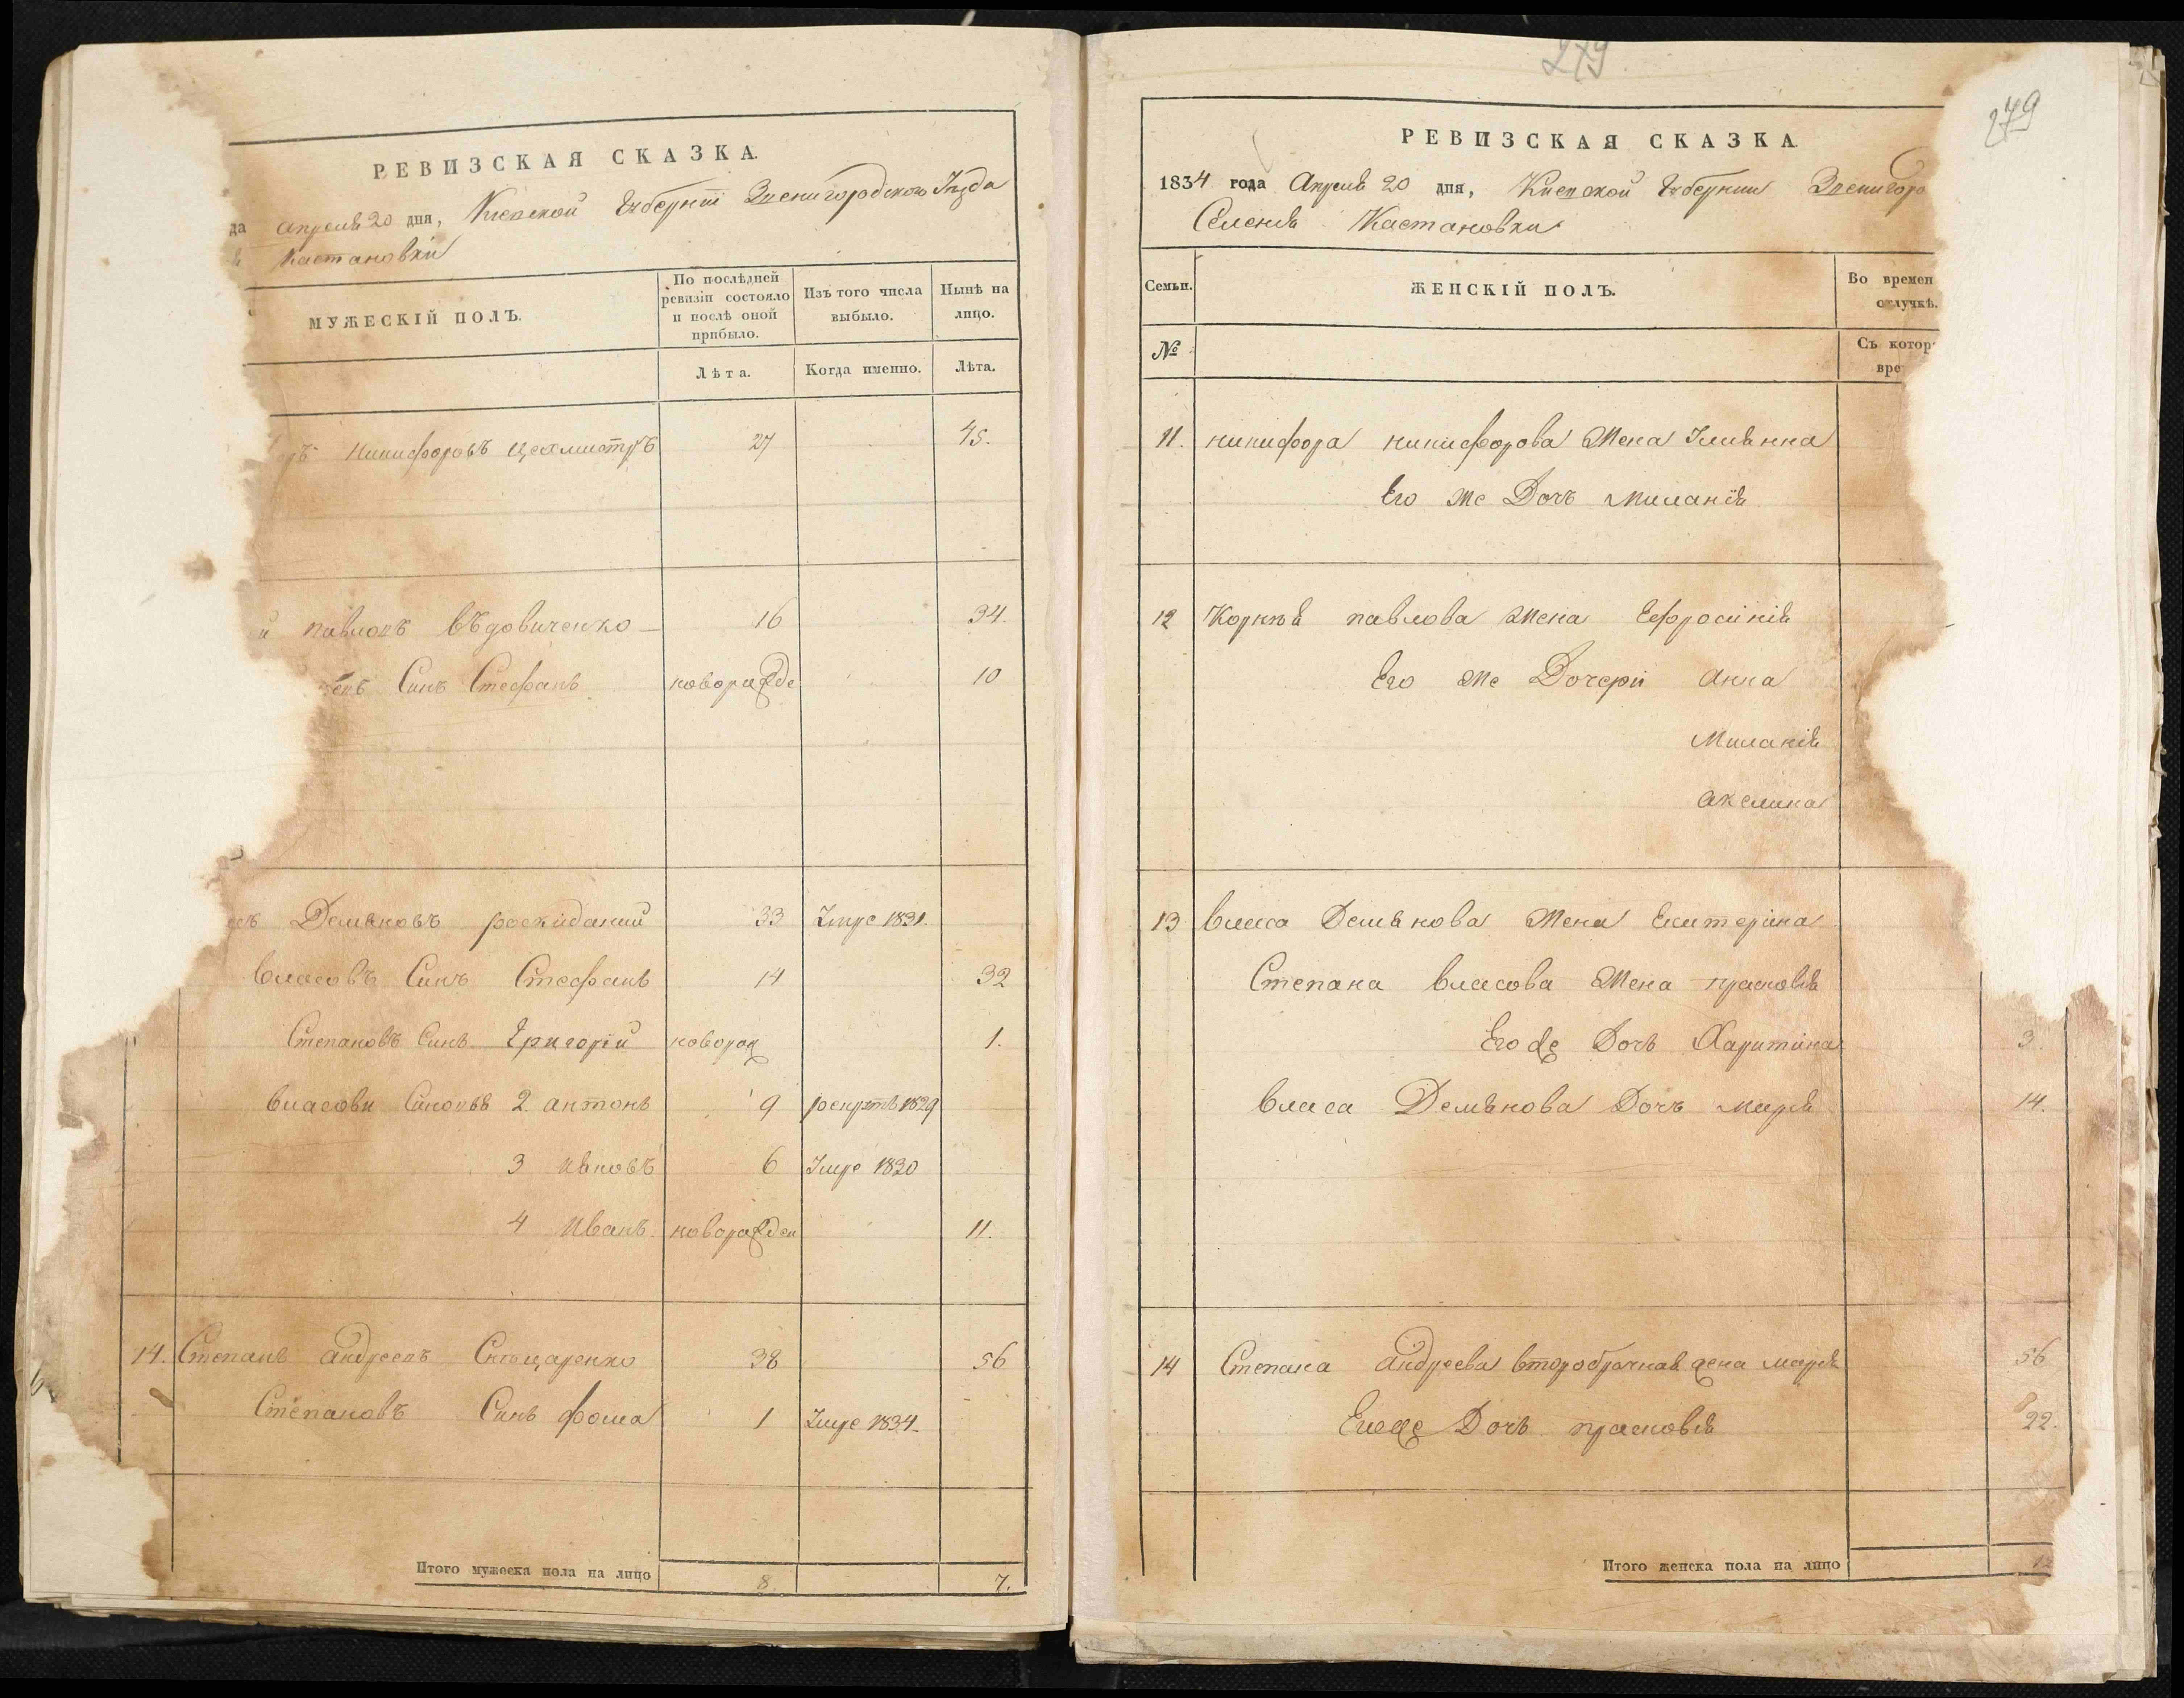 РЕВИЗСКАЯ СКАЗКА.
да апреля 20 дня, Киевской Губернїи Звенигородского Уезда
я Кастановки
МУЖЕСКІЙ ПОЛЪ.
По послѣдней ревизіи состояло и послѣ оной прибыло.
Изъ того числа выбыло.
Нынѣ на лицо.
Лѣта.
Когда именно.
Лѣта.
оръ Никифоровъ Цехмистръ 27 45.
й павловъ въдовиченко 16 34.
Синъ Стефанъ 10
Демяновъ роскиданий 33 Умре 1831.
власовъ Синъ Стефанъ 14 32
Степановъ Синъ Григорій новорож 1.
власови Синовья 2. антонъ 9 1829
3 6 Умре 1830
4 иванъ 11.
14. Степанъ андреевъ 38 56
Степановъ Синъ фома 1 Умре 1834.
Итого мужеска пола на лицо 8. 7.
279.
279
РЕВИЗСКАЯ СКАЗКА.
1834 года Апреля 20 дня, Киевской Губернии Звенигоро
Селения Кастановки
Семьи.
ЖЕНСКІЙ ПОЛЪ.
Во времен
отлучкѣ.
№
Съ котор
вре
11. никифора никифорова Жена
Его же Дочъ Миланія
12 Корнея павлова Жена Ефросинія
Его же Дочери анна
Миланія
13 власа Демянова Жена Екатерина
Степана власова Жена прасковія
Его же Дочъ Харитина 3.
власа Демянова Дочъ марія 14.
14 Степана андреева второбрачная жена марія 56
Дочъ прасковія 22.
Итого женска пола на лицо 12